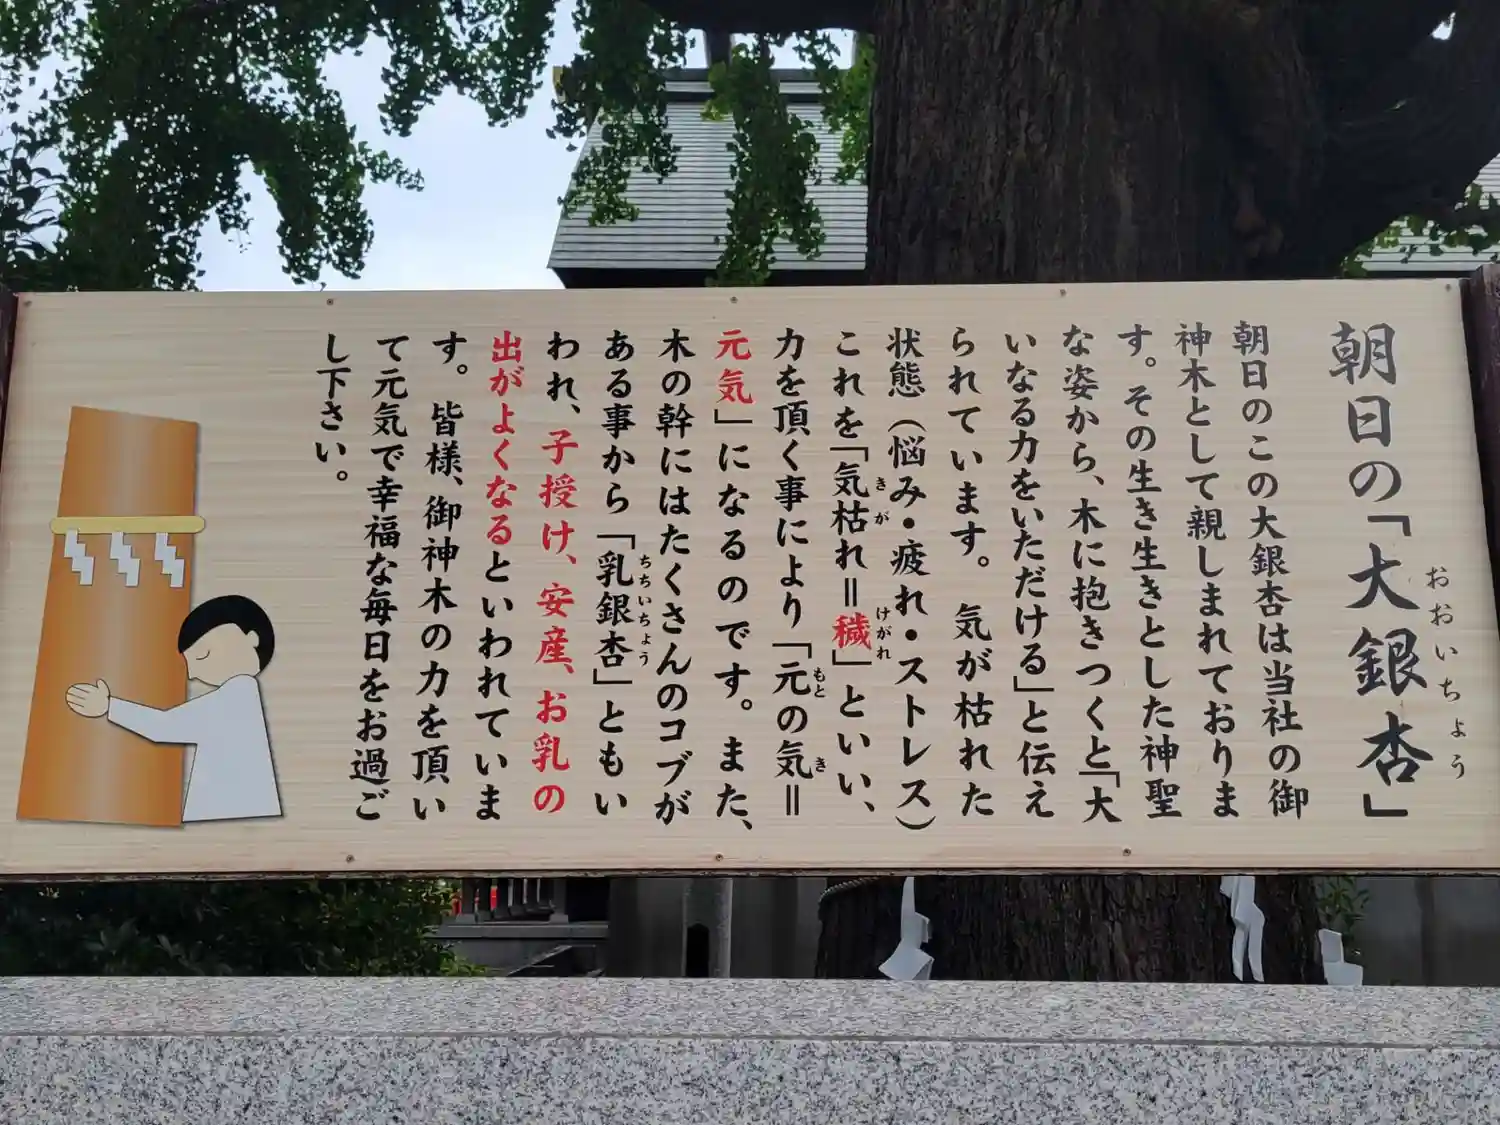 朝日の「大銀杏」
おおいちょう
朝日のこの大銀杏は当社の御
神木として親しまれておりま
す。その生き生きとした神聖
な姿から、木に抱きつくと「大
いなる力をいただける」と伝え
られています。気が枯れた
状態（悩み・疲れ・ストレス）
これを「気枯れ＝穢」といい、
きが
けがれ
力を頂く事により「元の気＝
もと
き
元気」になるのです。また、
木の幹にはたくさんのコブが
ある事から「乳銀杏」ともい
ちちいちょう
われ、子授け、安産、お乳の
出がよくなるといわれていま
す。皆様、御神木の力を頂い
て元気で幸福な毎日をお過ご
し下さい。